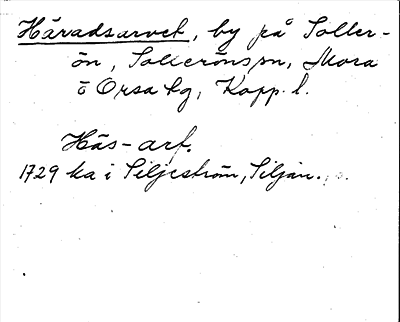 Häradsarvet, by på Soller-
ön, Solleröns sn, Mora
o Orsa tg, Kopp. l.
Häs-arf.
1729 ka i Siljeström, Siljan.